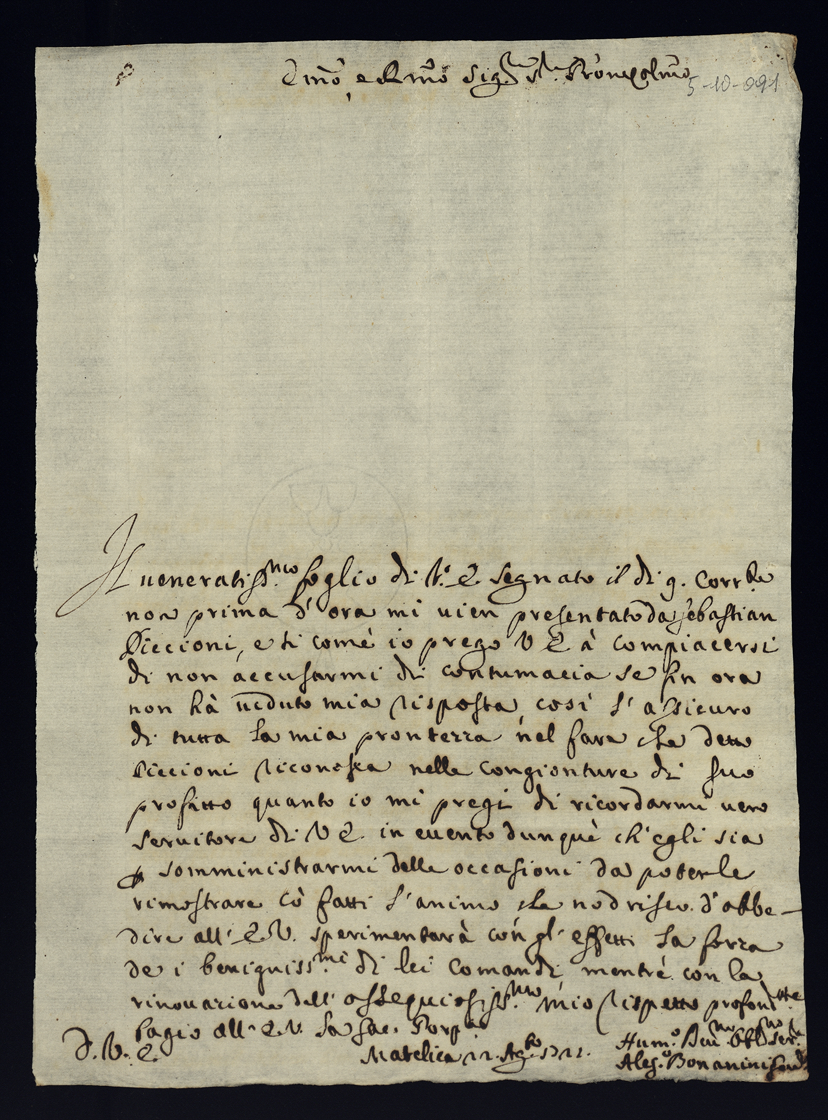 e Rmo Sig.re
5-10-991
Il veneratiss.mo foglio di V. E. segnato il di 9. Corr.te
non prima d'ora mi vien presentato da Sebastian
Piccioni, e si come io prego V E à compiacersi
di non accusarmi di contumacia se fin ora
non hà veduto mia risposta così l'assicuro
di tutta la mia prontezza nel fare che detto
Piccioni riconosca nelle congionture di suo
profitto quanto io mi pregi di ricordarmi vero
servitore di V E. in evento dunque ch'egli sia
p somministrarmi delle occasioni da poterle
rimostrare cò fatti l'animo che nodrisco d'obbe-
dire all'E V. sperimentarà con gl'effetti la forza
de i beniguiss.mi di lei Comandi mentre con la
rinovazione dell'ossequiosiss.mo mio rispetto profond.te
bagio all'E. V. la
D. V. E.
Matelica Ag.to
Hum.o Obl.mo Ser.re
Ales.o Bonanini